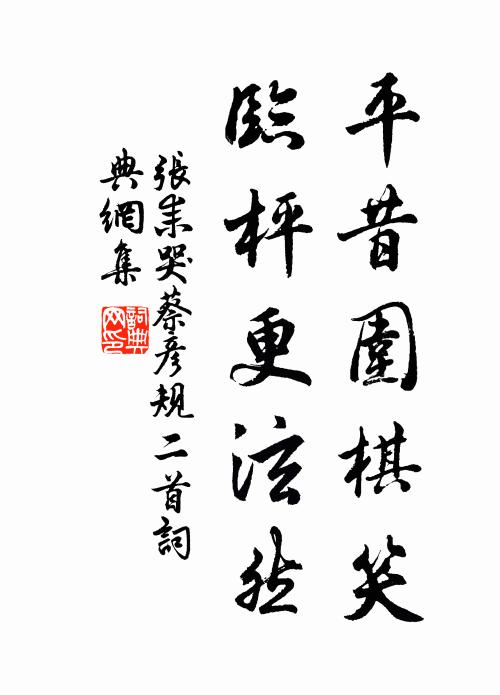 平昔圍棋笑
臨枰更泫然
張耒哭蔡彥規二首詞
典網集
詞典
网印